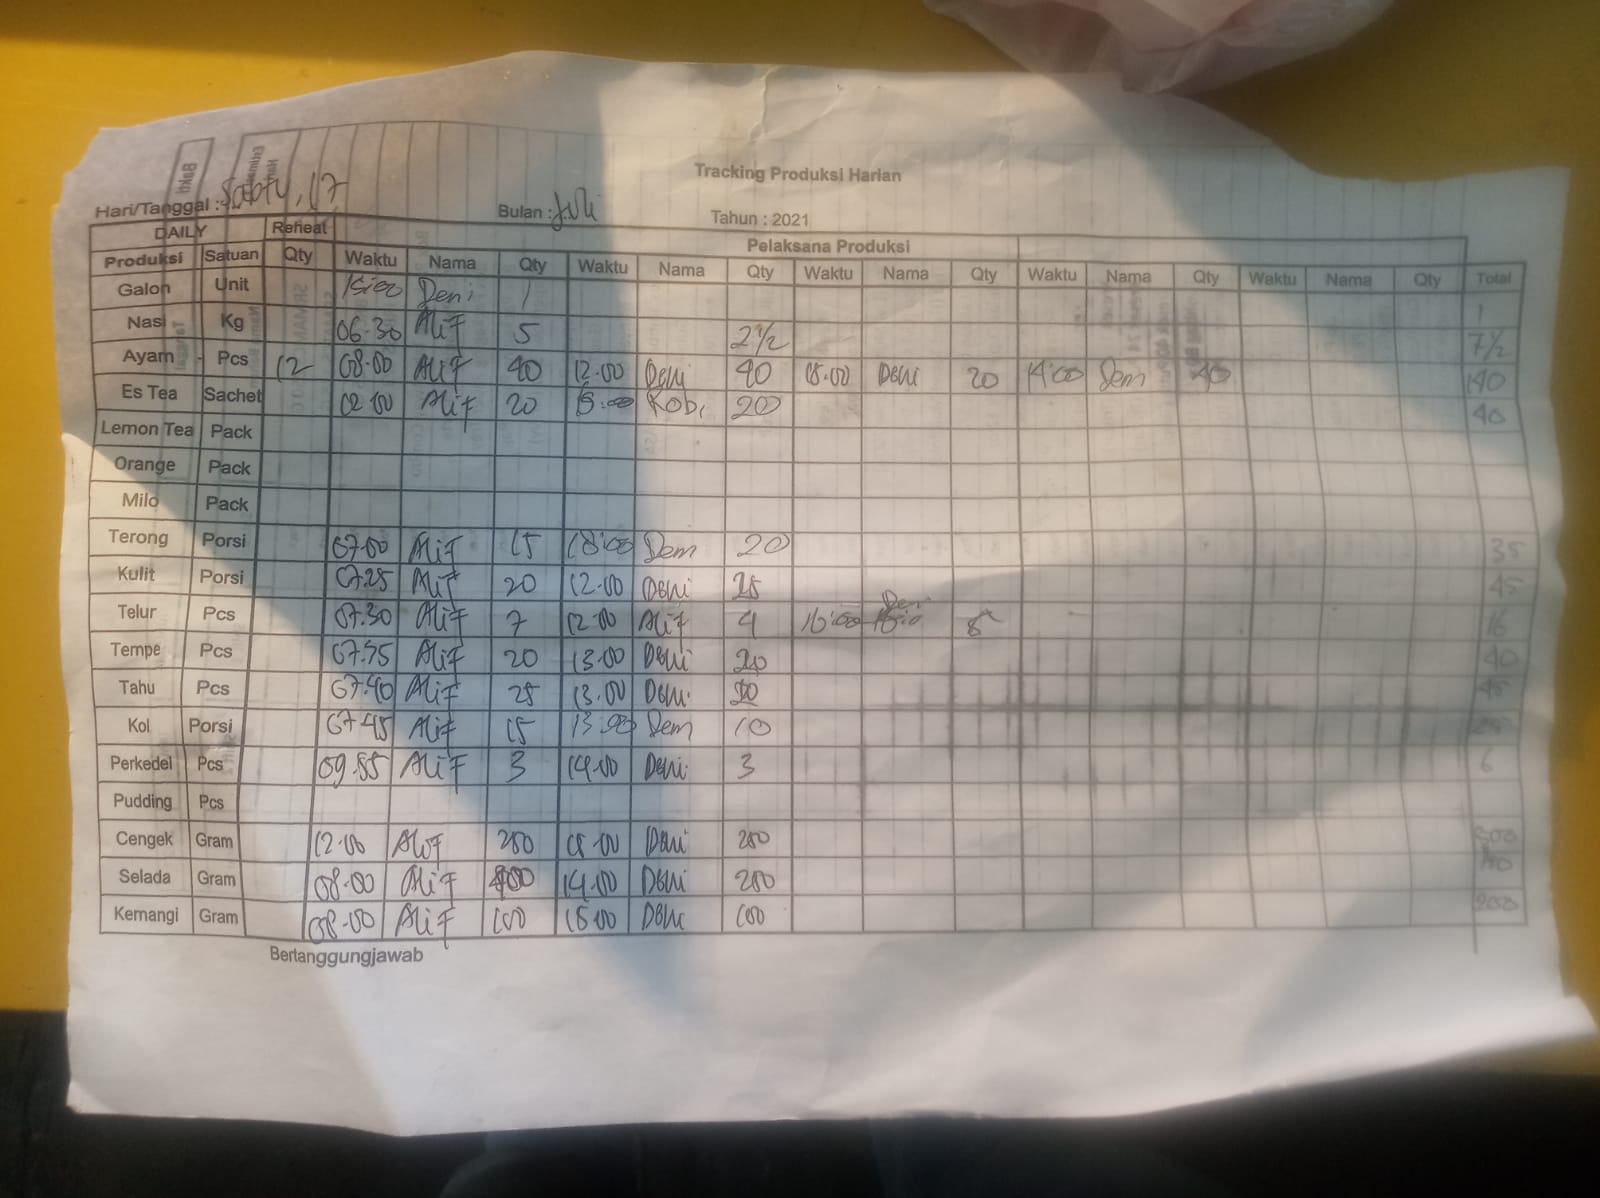 Tracking Produksi Harian
Hari/Tanggal : Sabtu, 17 Bulan : Juli Tahun : 2021
DAILY Reheat Pelaksana Produksi
Produksi Satuan Qty Waktu Nama Qty Waktu Nama Qty Waktu Nama Qty Waktu Nama Qty Waktu Nama Qty Total
Galon Unit Deni 1 1
Nasi Kg 06.30 Alif 5 2 1/2 7 1/2
Ayam Pcs 12 08.00 Alif 40 12.00 Deni 40 15.00 Deni 20 Deni 40 140
Es Tea Sachet Alif 20 Robi 20 40
Lemon Tea Pack
Orange Pack
Milo Pack
Terong Porsi 07.00 Alif 15 18:00 Deni 20 35
Kulit Porsi 07.25 Alif 20 12.00 Deni 25 45
Telur Pcs 07.30 Alif 7 12.00 Alif 4 16:00 Deni 5 16
Tempe Pcs 07.35 Alif 20 13.00 Deni 20 40
Tahu Pcs 07.40 Alif 25 13.00 Deni 20 45
Kol Porsi 07.45 Alif 15 13:00 Deni 10 25
Perkedel Pcs 09.55 Alif 3 14.00 Deni 3 6
Pudding Pcs
Cengek Gram 12.00 Alif 250 15.00 Deni 250 500
Selada Gram 08.00 Alif 14.00 Deni 250
Kemangi Gram 08.00 Alif 100 15.00 Deni 100 200
Bertanggungjawab